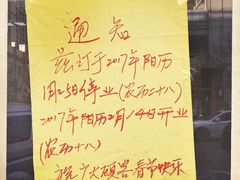 通知
兹订于2017年阳历
1月25日停业(农历二十八)
2017年阳历2月14日开业
(农历十八)
祝广大顾客春节快乐